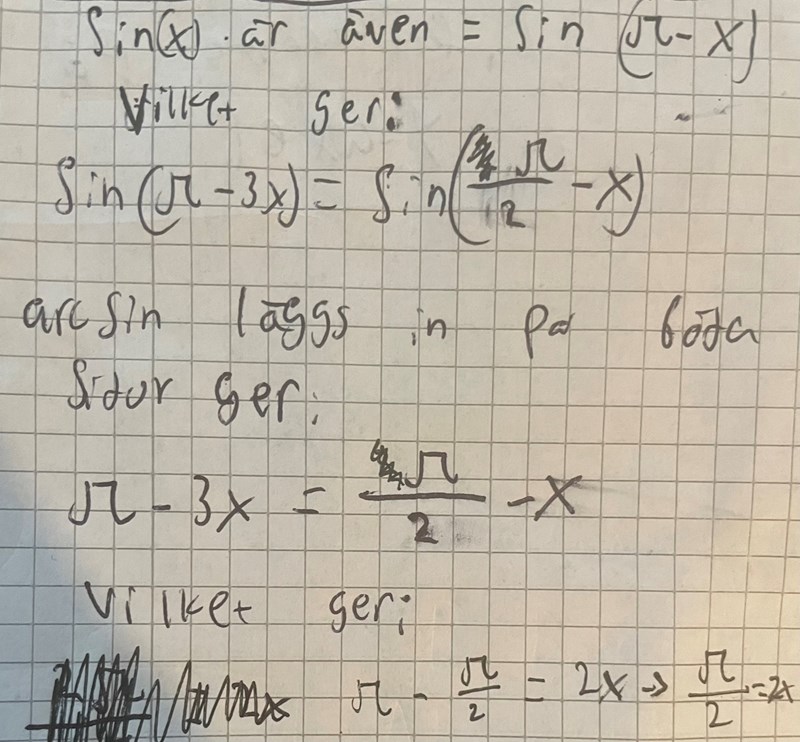 Sin(x) är även = Sin (π - x)
Vilket ger:
Sin(π - 3x) = Sin(π/2 - x)
arcsin läggs in på båda
Sidor ger:
π - 3x = π/2 - x
Vilket ger:
π - π/2 = 2x → π/2 = 2x